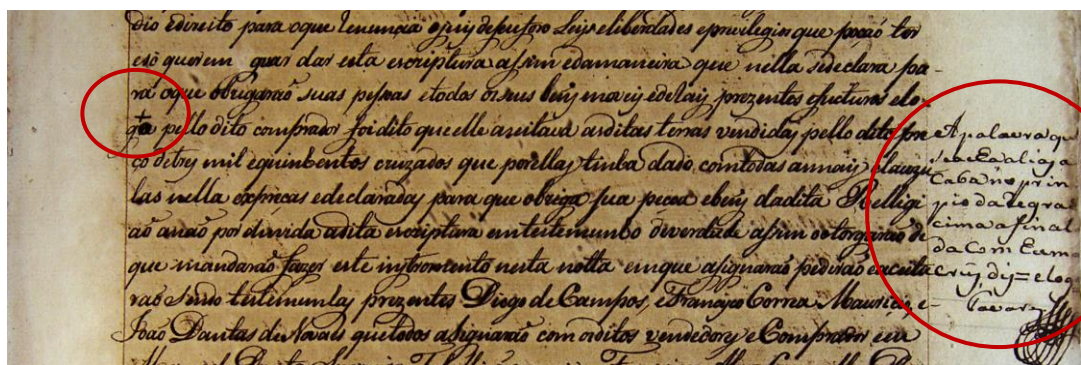 dio edireito para oque renuncia o juis de seu foro Leys eliberdades e privilegios que posaõ ter
e só querem guardar esta escriptura asim edamaneira que nella sedeclara pa-
ra oque obrigaraõ suas pesoas etodos os seus beñs moveis ede Rais prezentes efucturos elo-
go pello dito comprador foi dito que elle aseitava as ditas terras vendidas pello dito pre
ço detres mil equinhentos cruzados que por ellas tinha dado com todas as mais clauzu
las nella expricas edeclaradas para que obriga sua pecoa ebens dadita Relligi
aõ a naõ por duvida adita escriptura em testemunho deverdade asim o otorgaraõ de
que mandaraõ fazer este instromento nesta notta em que asignaraõ pediraõ e aceita
raõ sendo testemunhas prezentes Diogo de Campos, e Francisco Correa Mauricio, e-
Joaõ Dantas de Novais que todos asignaraõ com os ditos vendedores e Comprador eu
A palavra que
se acha
no prin
pio da regra
cima asinal
da Com huma
crus dis = elog